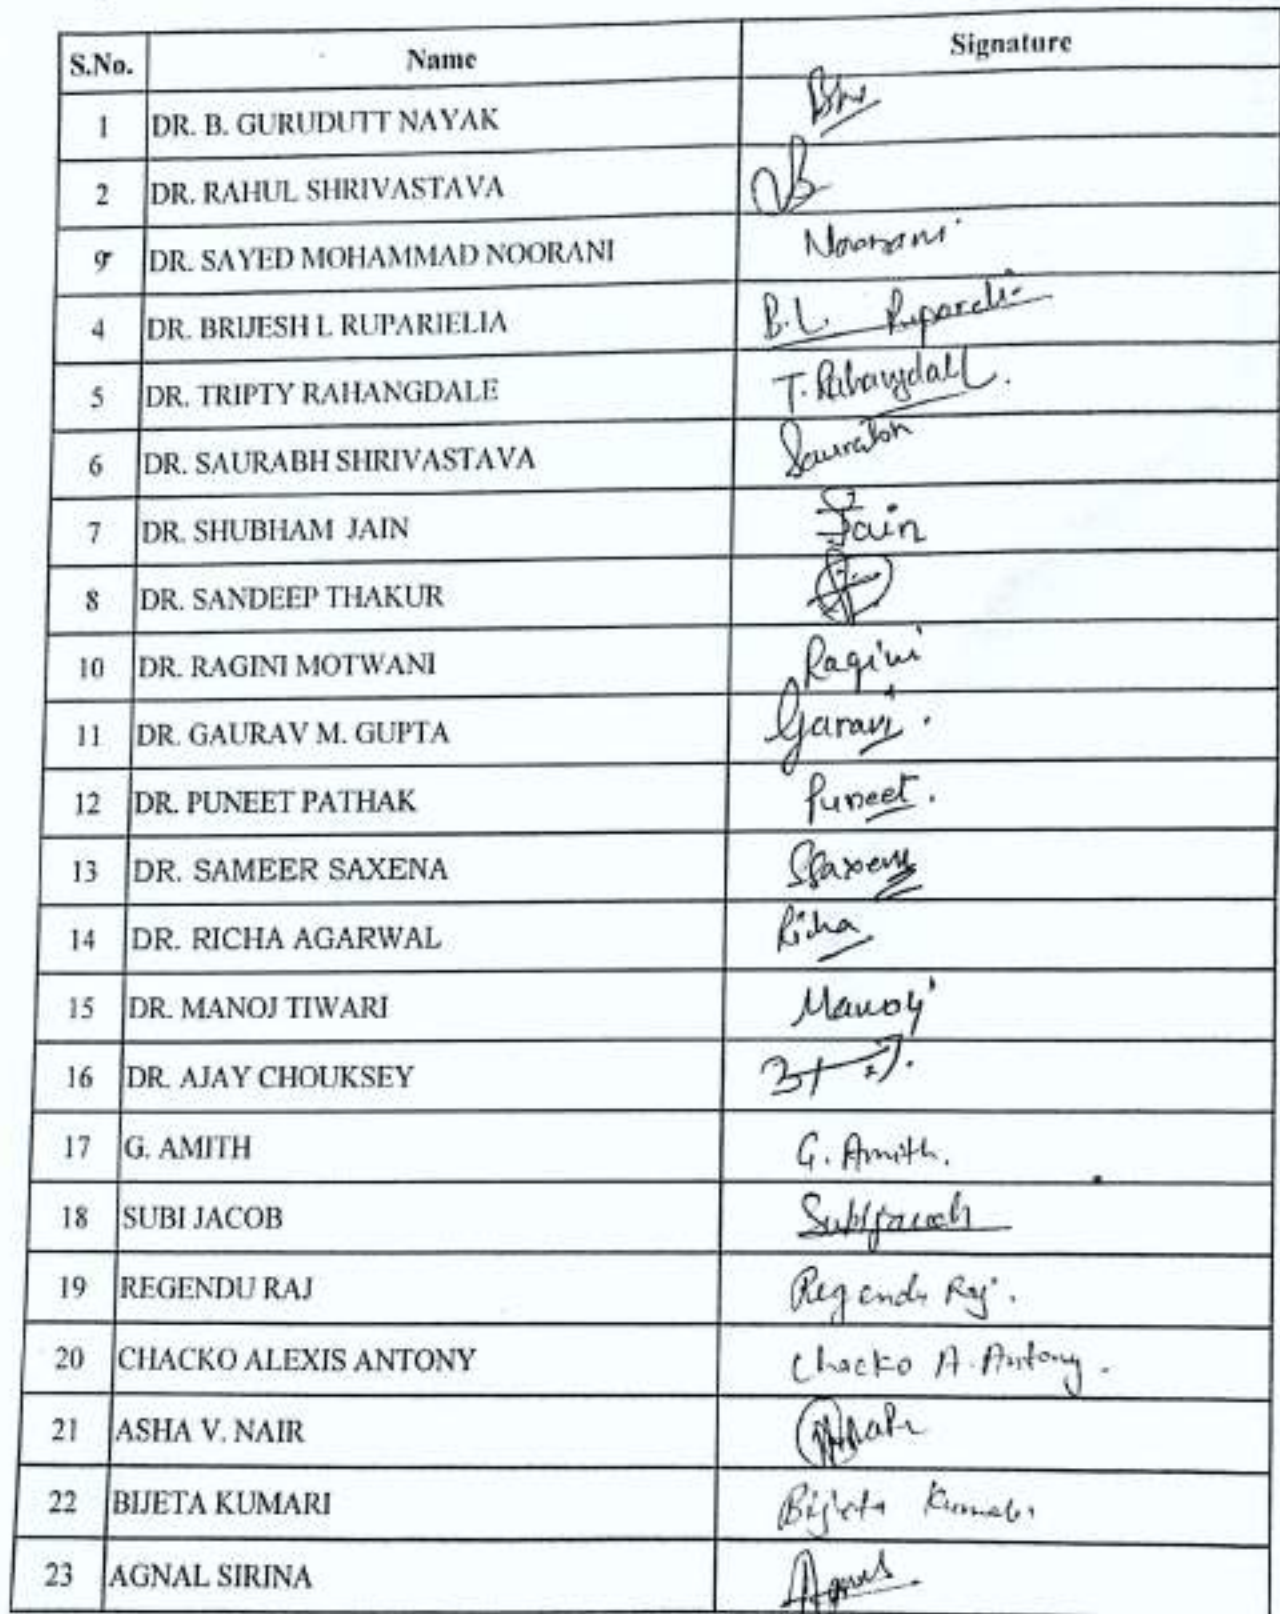 S.No. Name Signature
1 DR. B. GURUDUTT NAYAK
2 DR. RAHUL SHRIVASTAVA
9 DR. SAYED MOHAMMAD NOORANI Noorani
4 DR. BRIJESH L RUPARIELIA B.L. Ruparelia
5 DR. TRIPTY RAHANGDALE T. Rahangdale.
6 DR. SAURABH SHRIVASTAVA Saurabh
7 DR. SHUBHAM JAIN Jain
8 DR. SANDEEP THAKUR
10 DR. RAGINI MOTWANI Ragini
11 DR. GAURAV M. GUPTA
12 DR. PUNEET PATHAK Puneet.
13 DR. SAMEER SAXENA SSaxena
14 DR. RICHA AGARWAL Richa
15 DR. MANOJ TIWARI Manoj
16 DR. AJAY CHOUKSEY
17 G. AMITH G. Amith.
18 SUBI JACOB Subi Jacob
19 REGENDU RAJ Regendu Raj.
20 CHACKO ALEXIS ANTONY Chacko A. Antony.
21 ASHA V. NAIR
22 BIJETA KUMARI Bijeta Kumari
23 AGNAL SIRINA